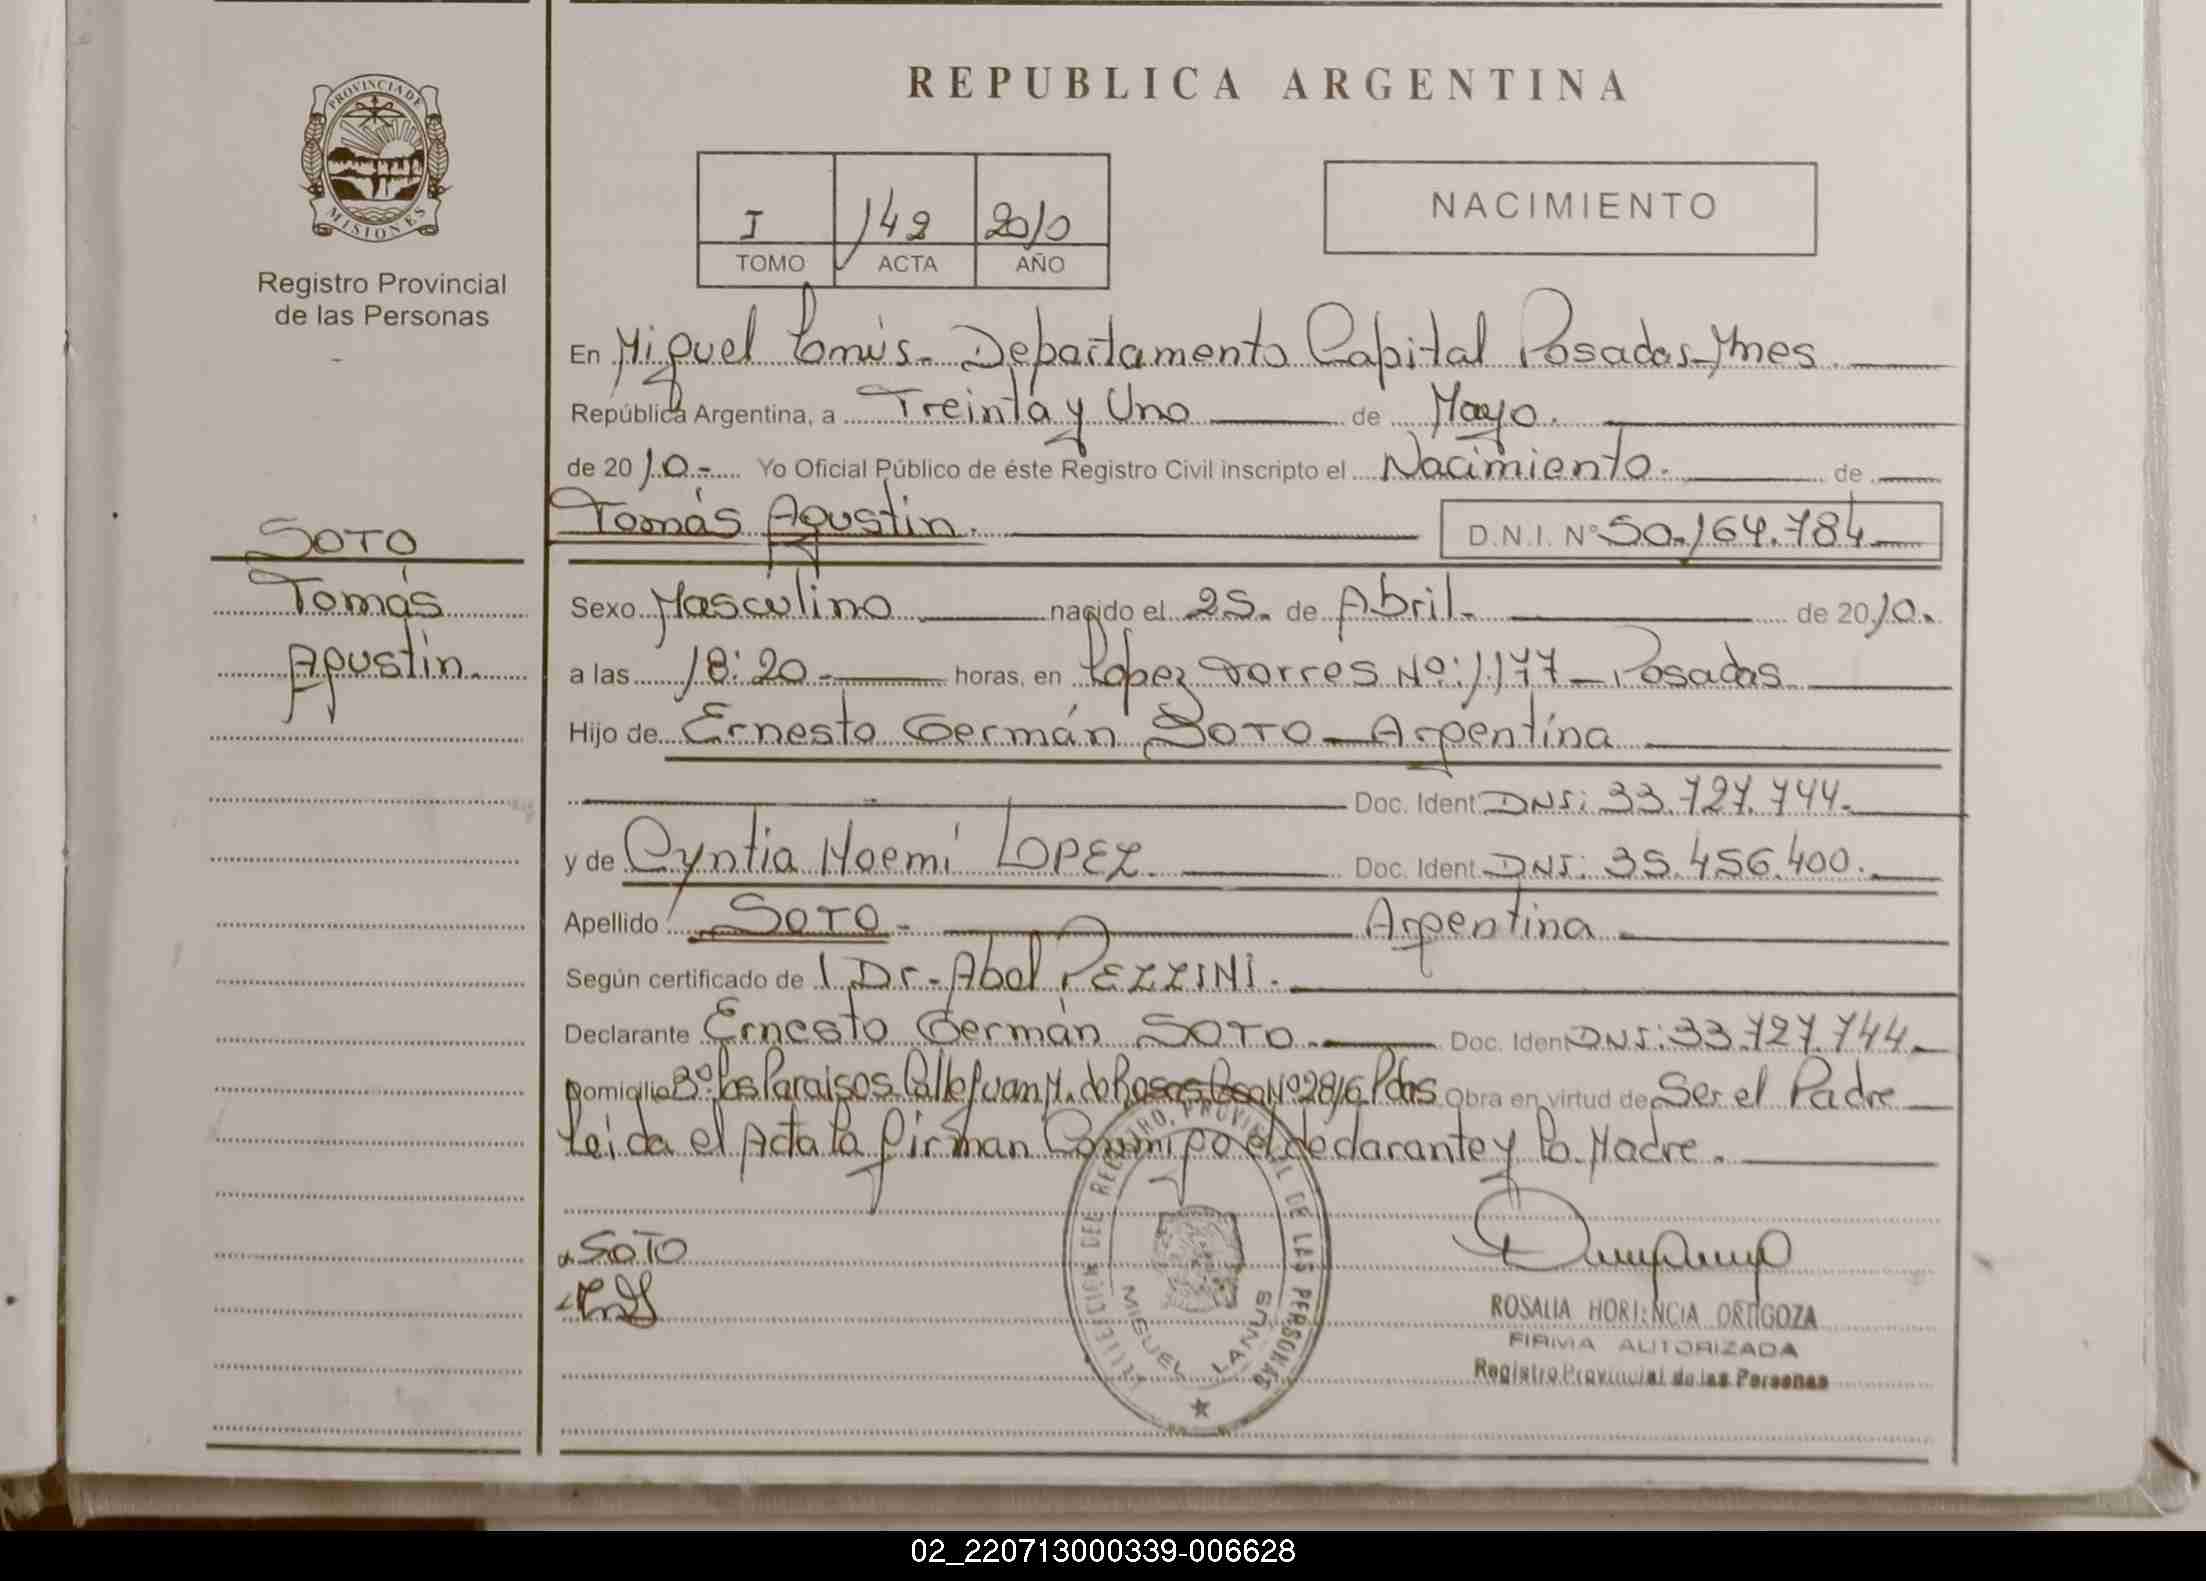 REPUBLICA ARGENTINA
PROVINCIA DE
MISIONES
Registro Provincial
de las Personas
I 142 2010
TOMO ACTA AÑO
NACIMIENTO
En Miguel Lanús - Departamento Capital Posadas - Mnes.
República Argentina, a Treinta y Uno de Mayo.
de 2010.- Yo Oficial Público de éste Registro Civil inscripto el Nacimiento. de
Tomás Agustín. D.N.I. Nº 50.164.784
SOTO
Tomás
Agustín.
Sexo Masculino nacido el 25. de Abril. de 2010.
a las 18:20 horas, en López Torres Nº: 1177 - Posadas
Hijo de Ernesto Germán SOTO - Argentina
Doc. Ident DNI: 33.727.744.
y de Cyntia Noemí LOPEZ. Doc. Ident DNI: 35.456.400.
Apellido SOTO - Argentina
Según certificado de l Dr. Abel PEZZINI.
Declarante Ernesto Germán SOTO. Doc. Ident DNI: 33.727.744.
Domicilio Bº Los Paraisos Calle Juan M. de Rosas Nº 2816 Pdas Obra en virtud de Ser el Padre
Leida el Acta la firman Conmigo el declarante y la Madre.
SOTO
MIGUEL LANUS
ROSALIA HORTENCIA ORTIGOZA
FIRMA AUTORIZADA
Registro Provincial de las Personas
02_220713000339-006628